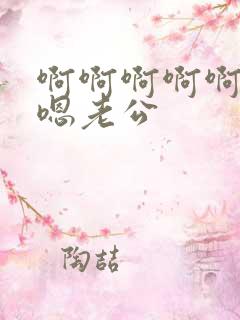 啊啊啊啊啊
嗯老公
陶喆